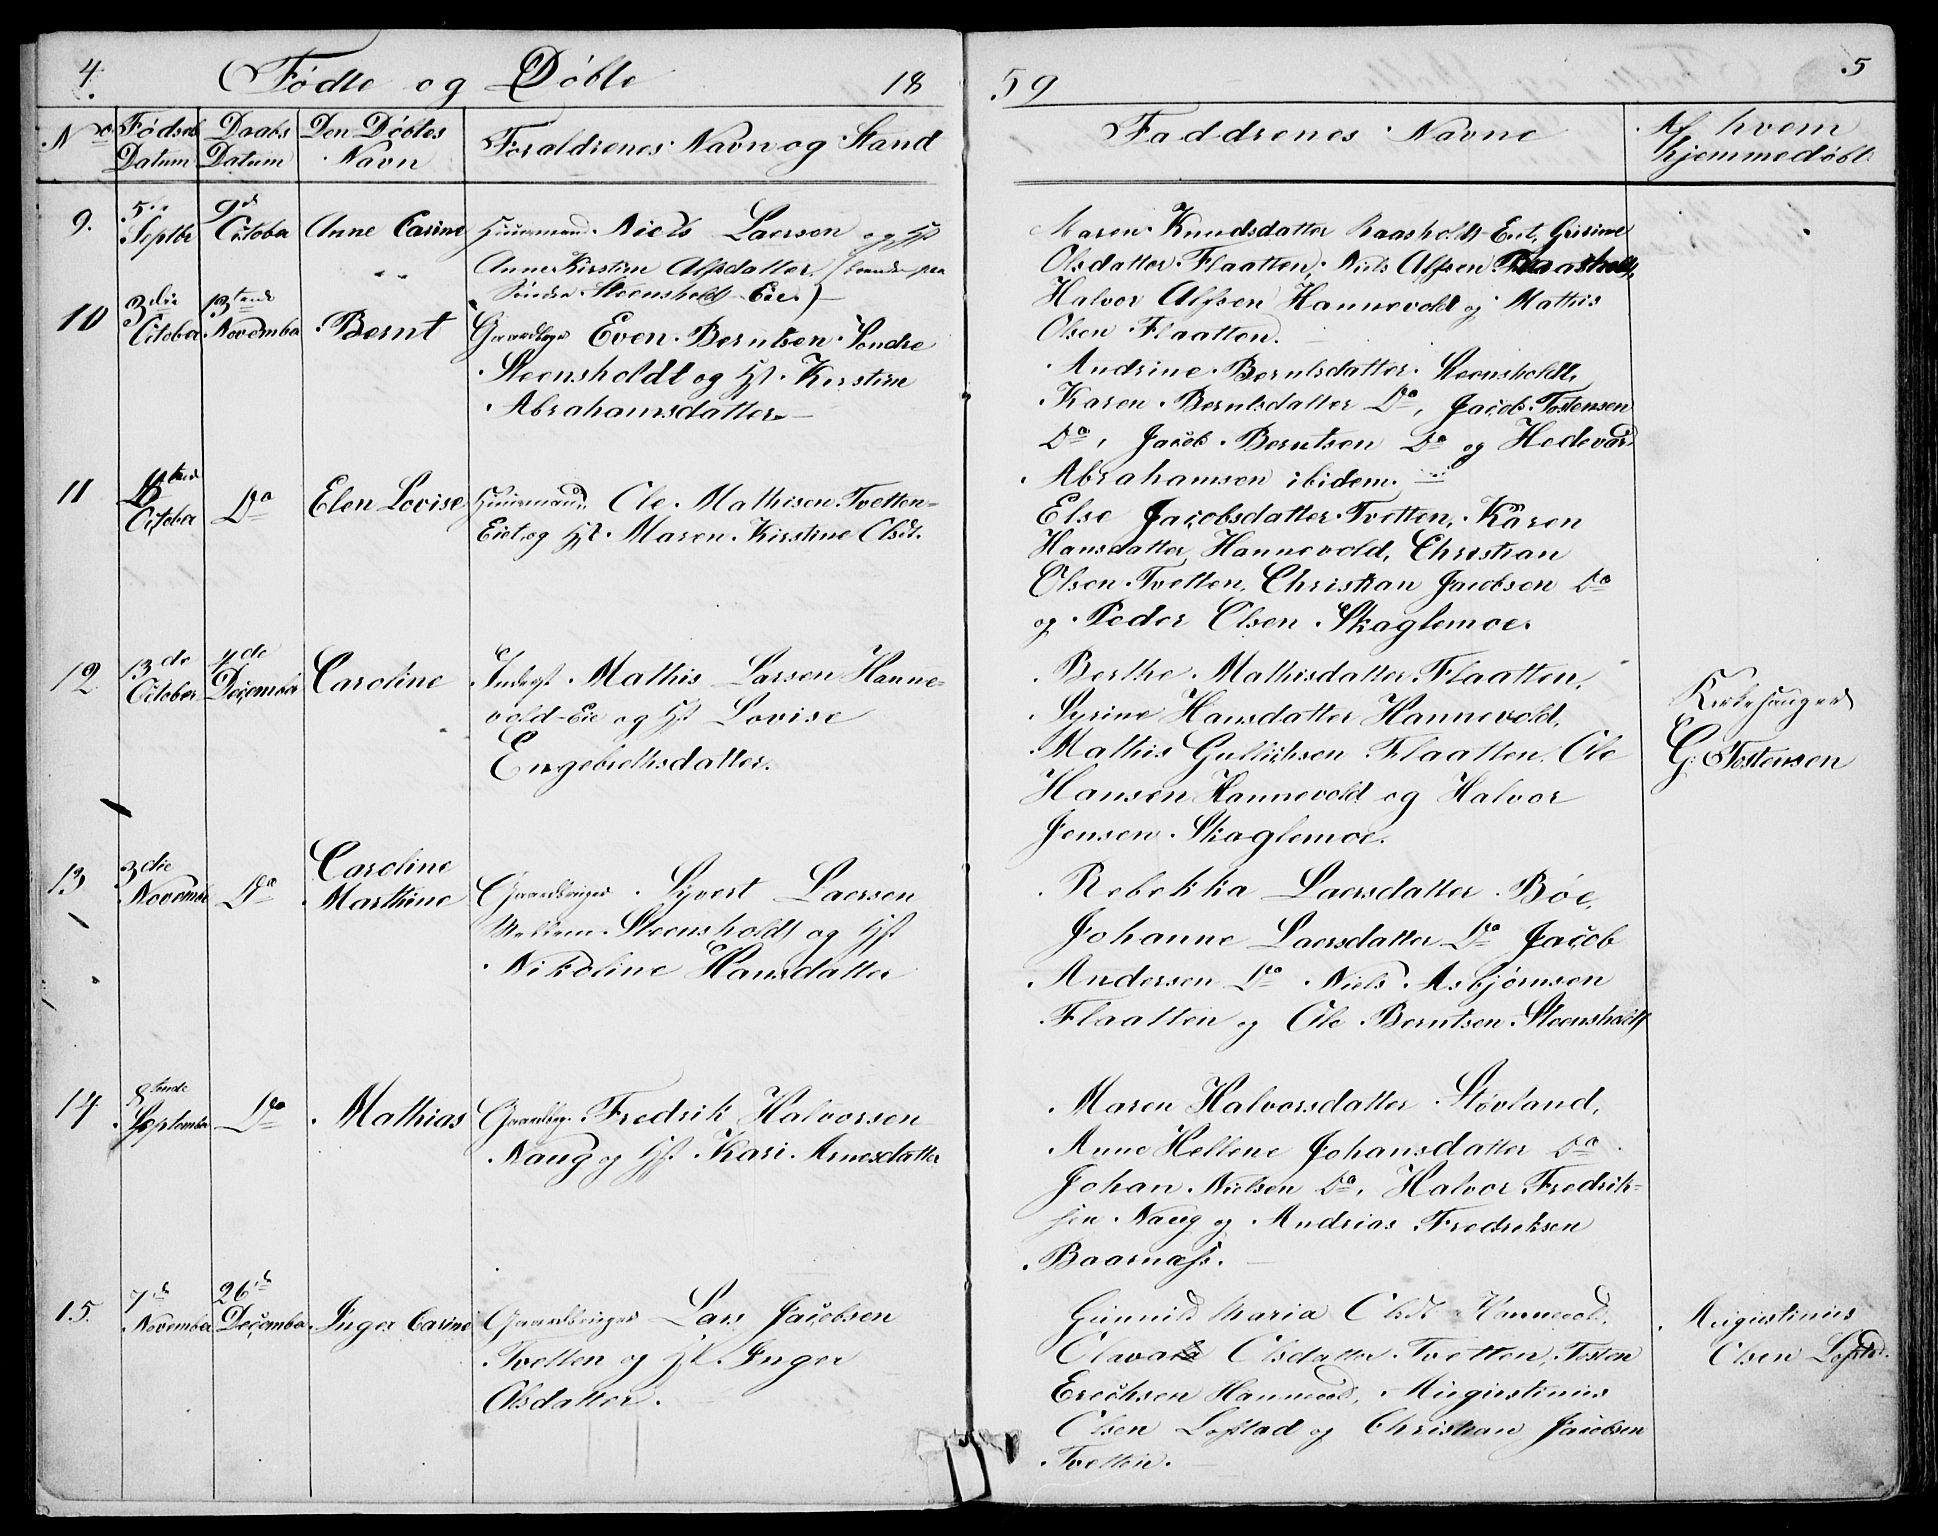 4. Fødte og Døbte 18
59 5
No Fødsels Daabs Den Døbtes Forældrenes Navn og Stand Faddrenes Navne Af hvem
Datum Datum Navn hjemmedøbt
9. 5te 9de
Septbr October Anne Carine Huusmand Niels Laersen og Hst
Anne Kirstine Alfsdatter (boende paa
Søndre Steensholdt Eie)
Maren Knudsdatter Raasholdt Eiet,
Olsdatter Flaatten, Niels Alfsen
Halvor Alfsen Hannevold og Mathis
Olsen Flaatten.
10 3die 13tende
October November Bernt Gaardbr Even Berntsen Søndre
Steensholdt og Hst. Kirstine
Abrahamsdatter
Andrine Berntsdatter Steensholdt,
Karen Berntsdatter Do, Jacob Tostensen
Do, Jacob Berntsen Do og Hedevar
Abrahamsen ibidem.
11
October Do Elen Lovise Huusmand Ole Mathisen Tvetten-
Eiet, og Hst. Maren Kirstine Olsdt.
Else Jacobsdatter Tvetten, Karen
Hansdatter Hannevold, Christian
Olsen Tvetten, Christian Jacobsen Do
og Peder Olsen Skaglemoe.
12 13de 4de
October December Caroline Inderst Mathis Larsen Hanne-
vold-Eie og Hst Lovise
Engebrethsdatter.
Berthe Mathisdatter Flaatten,
Syrine Hansdatter Hannevold,
Mathis Gullichsen Flaatten, Ole
Hansen Hannevold og Halvor
Jensen Skaglemoe.
Kirkesanger
G. Tostensen
13 3die Caroline
November Do Marthine Gaardbruger Syvert Laersen
Mellem Steensholdt og Hst
Nikoline Hansdatter
Rebekka Laersdatter Bøe,
Johanne Laersdatter Do Jacob
Andersen Do Niels Asbjørnsen
Flaatten og Ole Berntsen Steensholdt
14 8tende
September Do Mathias Gaardbrg. Fredrik Halvorsen
Naug og Hst. Kari Arnesdatter
Maren Halvorsdatter Støvland,
Anne Hellene Johansdatter Do
Johan Nielsen Do, Halvor Fredrik-
sen Naug og Andrias Fredriksen
Baarnæss.
15. 7de 26de
November December Inger Carine Gaardbruger Lars Jacobsen
Tvetten og Hst. Inger
Olsdatter.
Gunnild Maria Olsdt Hannevold,
Olava Olsdatter Tvetten, Tosten
Erichsen Hannevold, Augustinius
Olsen Lofstad og Christian Jacobsen
Tvetten.
Augustinius
Olsen Lofstad.